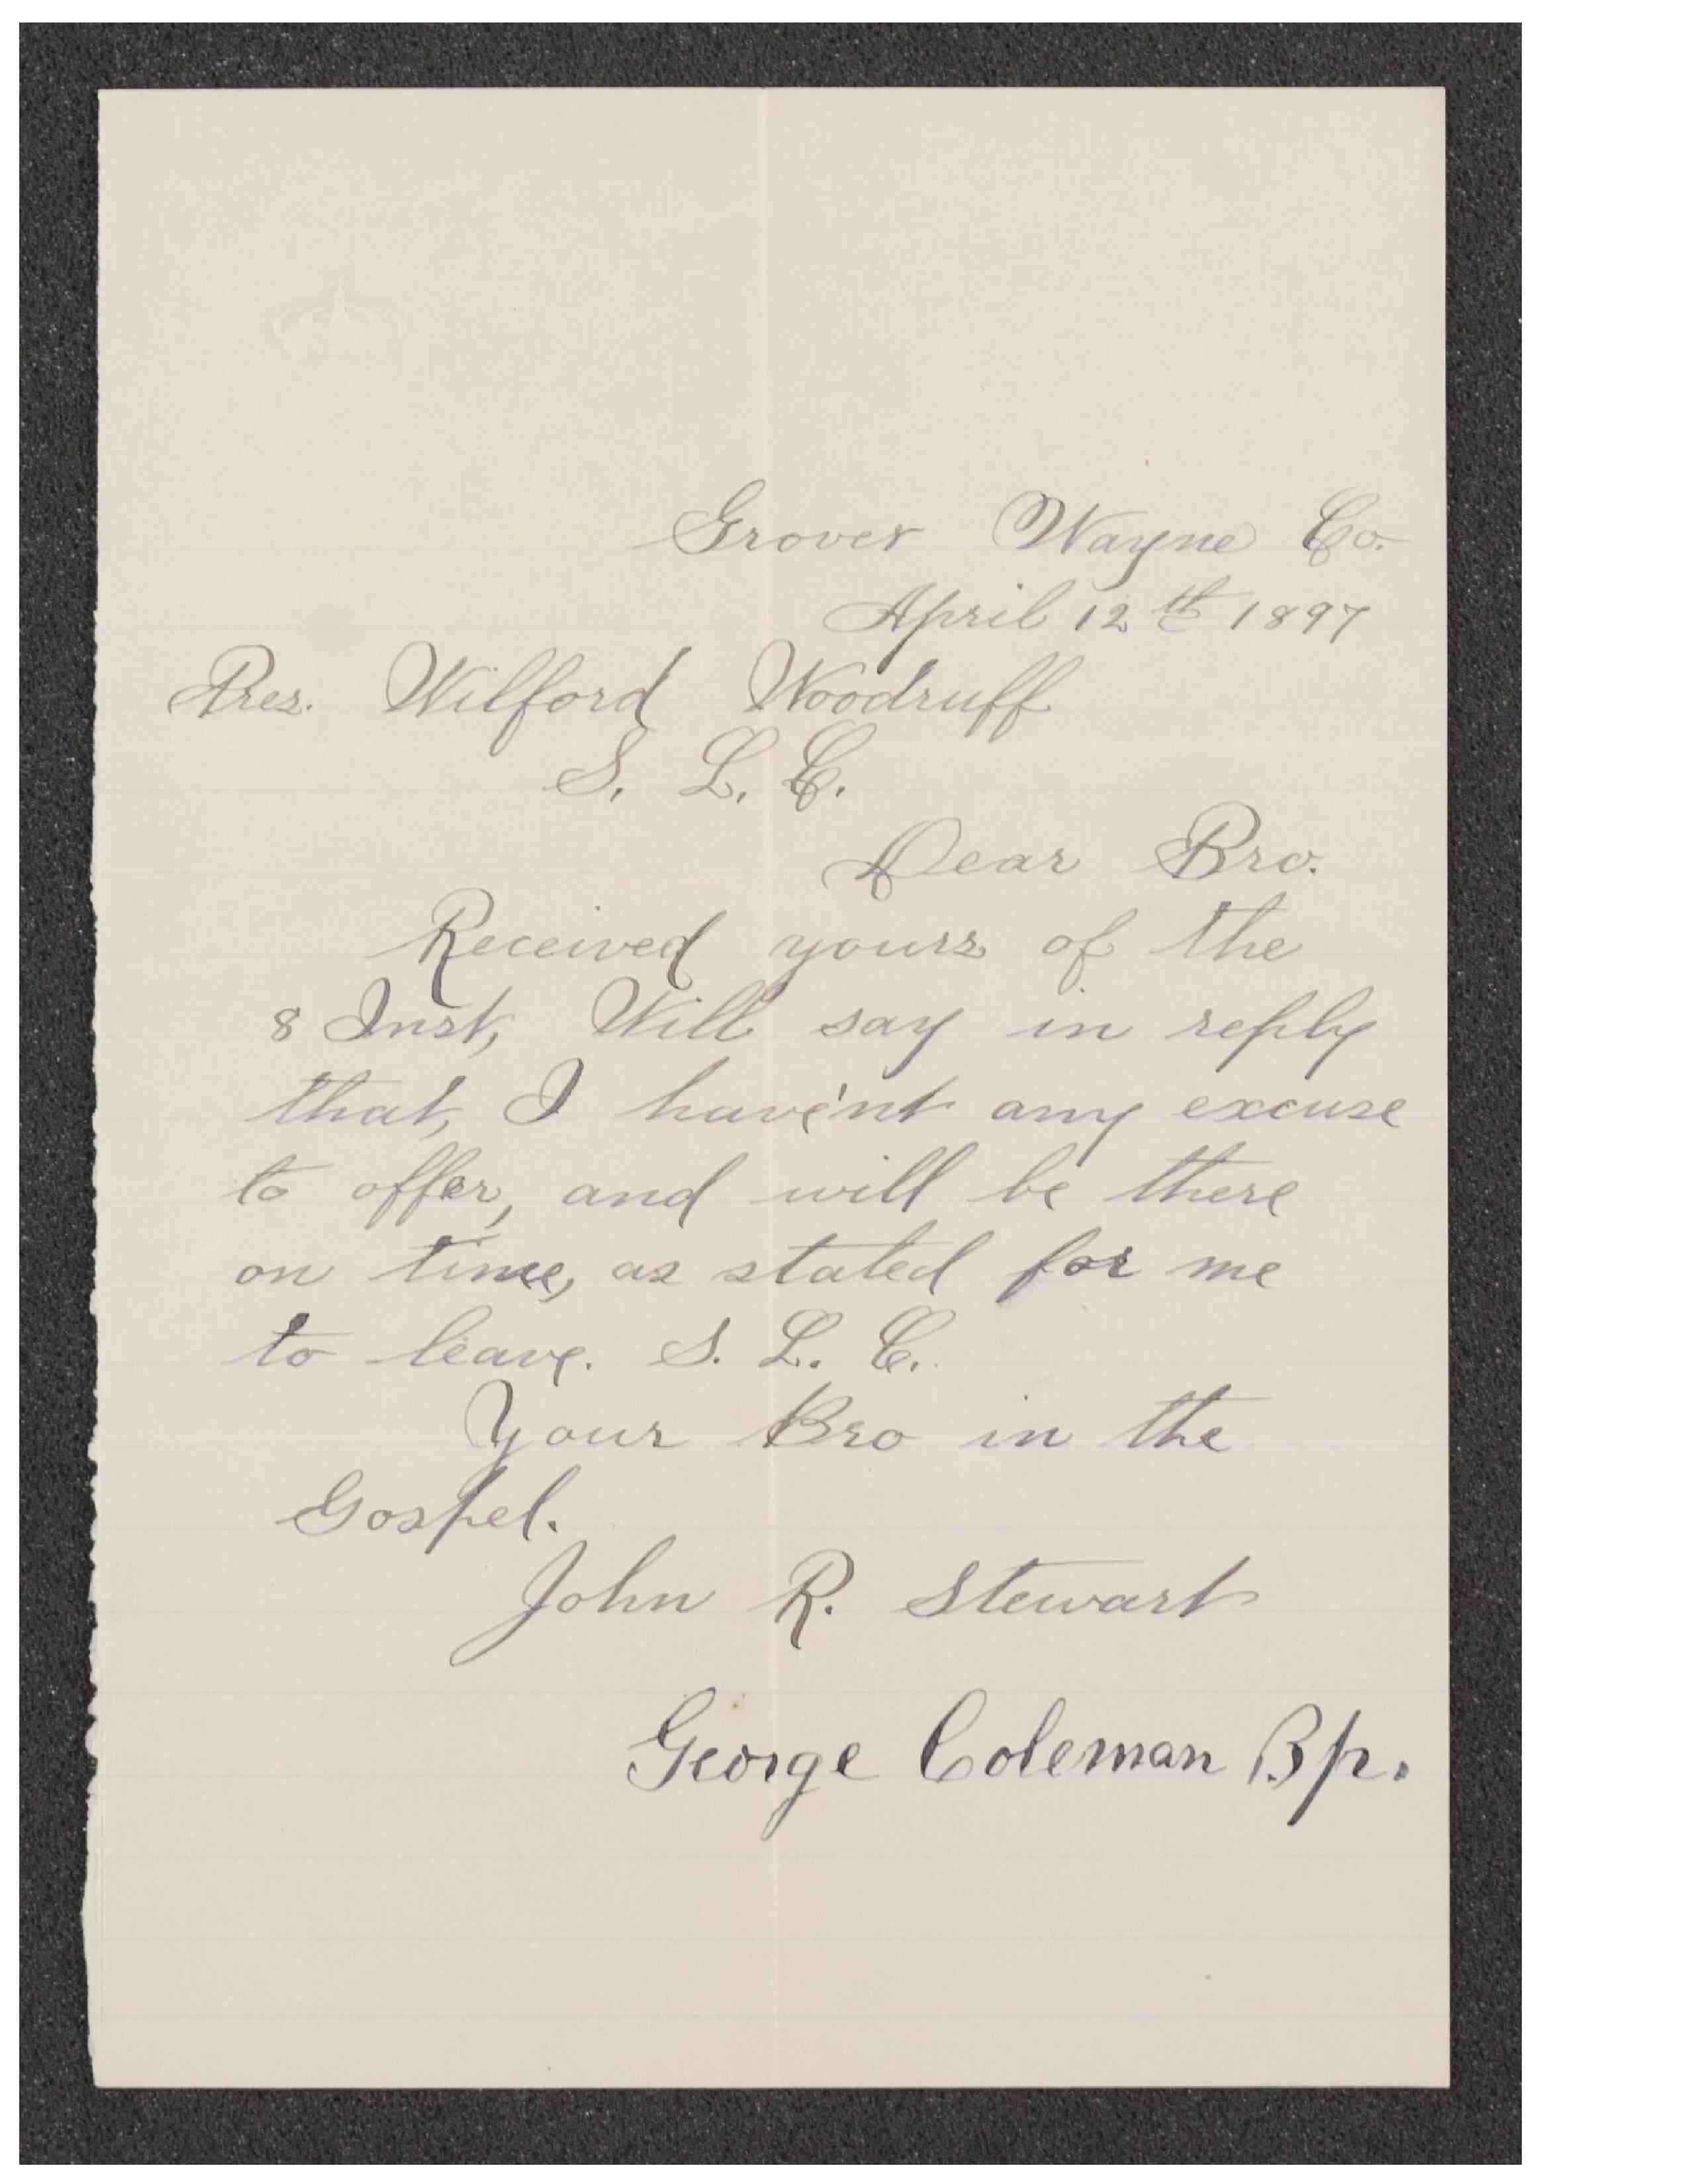 Grover Wayne Co.
April 12th 1897
Pres. Wilford Woodruff
S. L. C.
Dear Bro.
Received yours of the
8 Inst, Will say in reply
that, I have'nt any excuse
to offer, and will be there
on time, as stated for me
to leave. S. L. C.
Your Bro in the
Gospel.
John R. Stewart
George Coleman Bp.